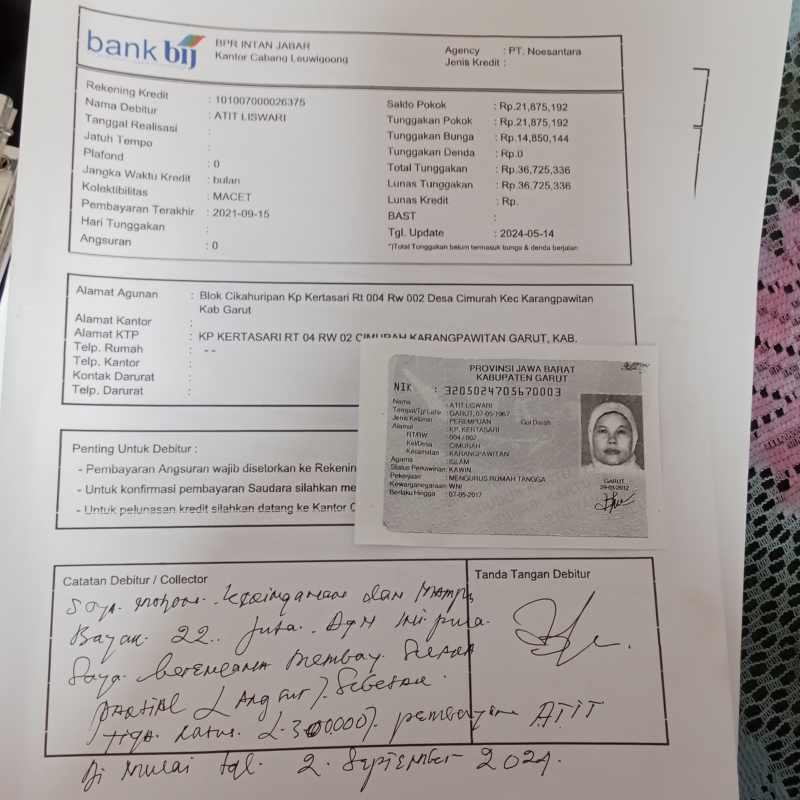 bank bij
BPR INTAN JABAR
Kantor Cabang Leuwigoong
Agency : PT. Noesantara
Jenis Kredit :
Rekening Kredit : 101007000026375
Nama Debitur : ATIT LISWARI
Tanggal Realisasi :
Jatuh Tempo :
Plafond : 0
Jangka Waktu Kredit : bulan
Kolektibilitas : MACET
Pembayaran Terakhir : 2021-09-15
Hari Tunggakan :
Angsuran : 0
Saldo Pokok : Rp.21,875,192
Tunggakan Pokok : Rp.21,875,192
Tunggakan Bunga : Rp.14,850,144
Tunggakan Denda : Rp.0
Total Tunggakan : Rp.36,725,336
Lunas Tunggakan : Rp.36,725,336
Lunas Kredit : Rp.
BAST :
Tgl. Update : 2024-05-14
*)Total Tunggakan belum termasuk bunga & denda berjalan
Alamat Agunan : Blok Cikahuripan Kp Kertasari Rt 004 Rw 002 Desa Cimurah Kec Karangpawitan
Kab Garut
Alamat Kantor :
Alamat KTP : KP KERTASARI RT 04 RW 02 CIMURAH KARANGPAWITAN GARUT, KAB.
Telp. Rumah : --
Telp. Kantor :
Kontak Darurat :
Telp. Darurat :
PROVINSI JAWA BARAT
KABUPATEN GARUT
NIK : 3205024705670003
Nama : ATIT LISWARI
Tempat/Tgl Lahir : GARUT, 07-05-1967
Jenis Kelamin : PEREMPUAN Gol Darah :
Alamat : KP. KERTASARI
RT/RW : 004 / 002
Kel/Desa : CIMURAH
Kecamatan : KARANGPAWITAN
Agama : ISLAM
Status Perkawinan: KAWIN
Pekerjaan : MENGURUS RUMAH TANGGA
Kewarganegaraan: WNI
Berlaku Hingga : 07-05-2017
GARUT
29-03-2012
Penting Untuk Debitur :
- Pembayaran Angsuran wajib disetorkan ke Rekenin
- Untuk konfirmasi pembayaran Saudara silahkan me
- Untuk pelunasan kredit silahkan datang ke Kantor C
Catatan Debitur / Collector
Tanda Tangan Debitur
Saya mohon keringanan dan mampu
Bayar 22 juta. Dgn ini pula
Saya berencana membay secara
partial (Angsur). Sebesar
tiga ratus (.300.000). pembayaran
ATIT
Di mulai tgl. 2. September 2024.